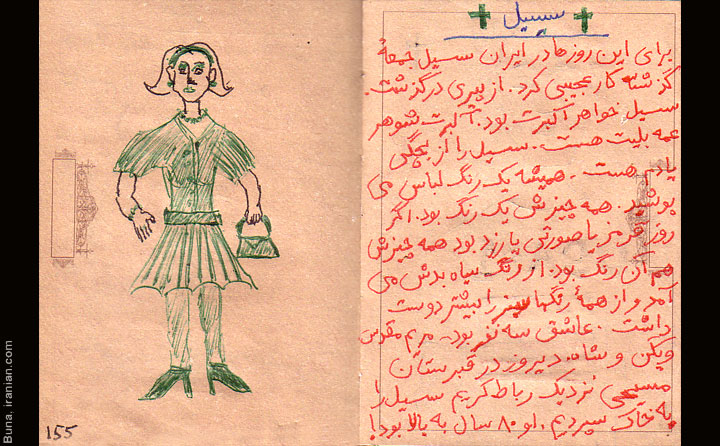 سسیل
برای این روزها در ایران سسیل جمعهٔ
گذشته کار عجیبی کرد. از پیری درگذشت.
سسیل خواهر آلبرت بود. آلبرت شوهر
عمه بلیت هست. سسیل را از بچگی
یادم هست. همیشه یک رنگ لباس می
پوشید. همه چیزش یک رنگ بود. اگر
روز قرمز یا صورتی یا زرد بود همه چیزش
هم آن رنگ بود. از رنگ سیاه بدش می
آمد و از همهٔ رنگها سبز را بیشتر دوست
داشت. عاشق سه نفر بود. مریم مقدس
ویگن و شاه. دیروز در قبرستان
مسیحی نزدیک رباط کریم سسیل را
به خاک سپردیم. او ۸۰ سال به بالا بود!
155
Buna, iranian.com